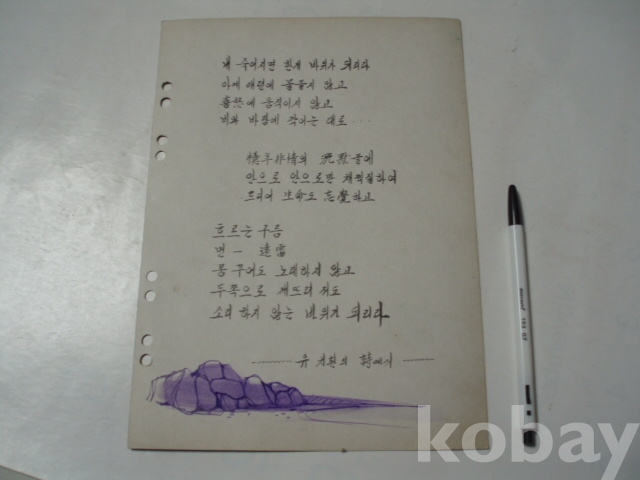 내 죽어지면 한개 바위가 되리라
아예 애련에 물들지 않고
喜怒에 움직이지 않고
비와 바람에 깎이는 대로...
億年非情의 沈默 들에
안으로 안으로만 채찍질하여
드디어 生命도 忘覺하고
흐르는 구름
먼 - 遠雷
꿈 꾸어도 노래하지 않고
두쪽으로 깨뜨려 져도
소리 하지 않는 바위가 되리라
유 치환의 詩에서
monami 153 0.7
kobay